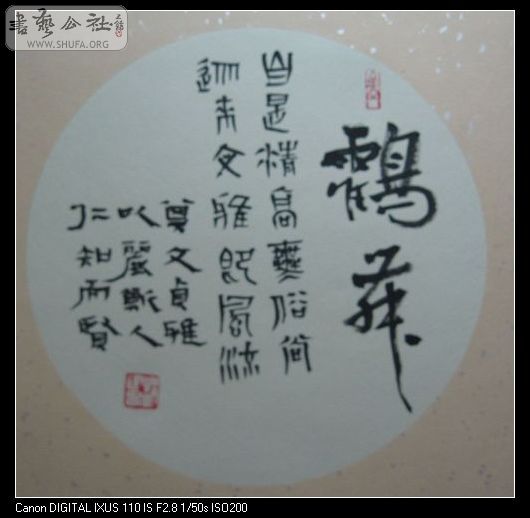 書藝公社
WWW.SHUFA.ORG
鶴舞
自是精高俗尚
迩来文雅既風流
尊文貞雅
以麗斯人
仁知而賢
Canon DIGITAL IXUS 110 IS F2.8 1/50s ISO200